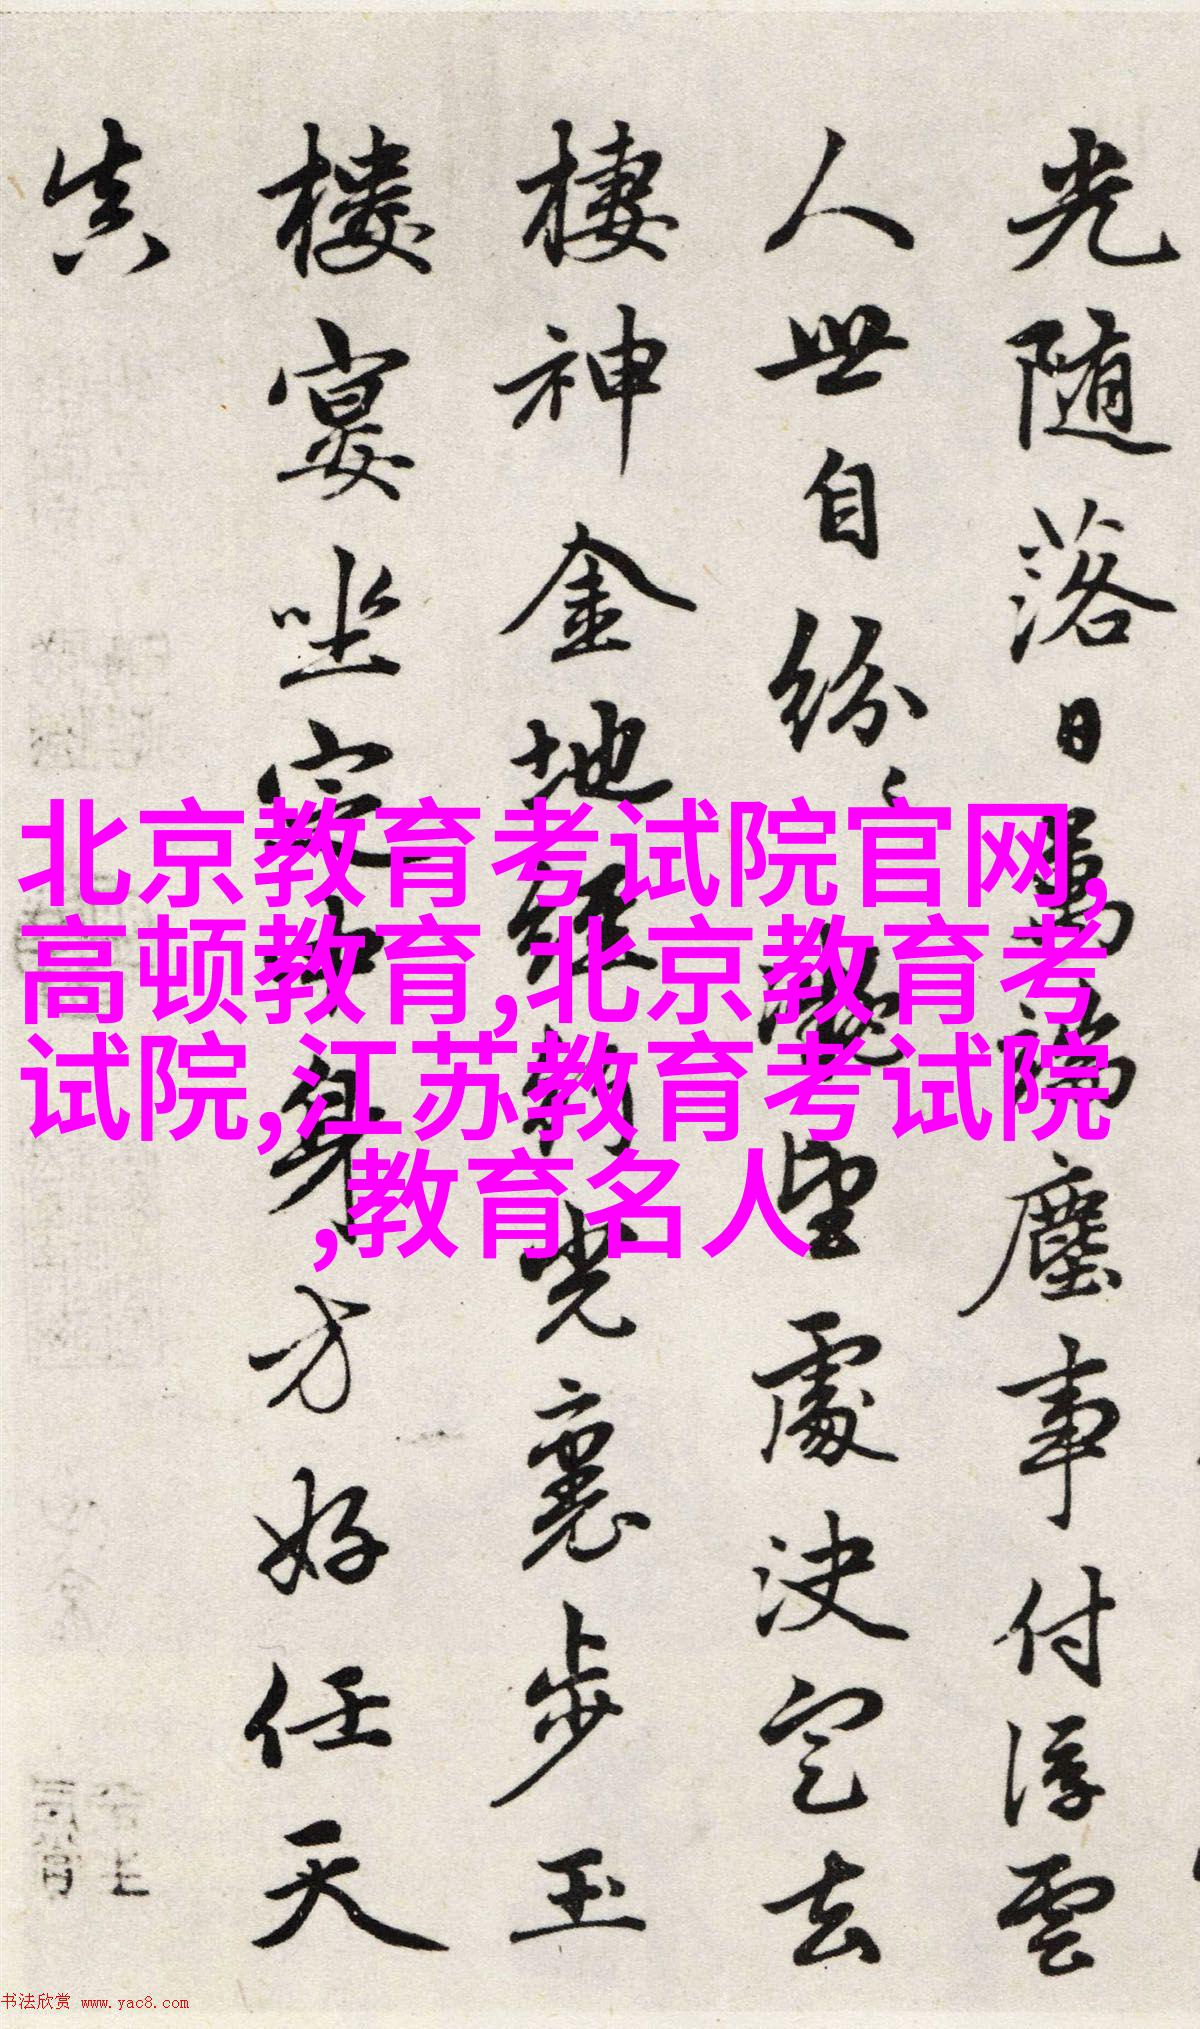 光随落日萬端塵事付浮雲
人世自紛〻望處決定去
棲神金地經光裏步玉
楼宴坐定中身方好任天
真
北京教育考试院官网,
高顿教育,北京教育考
试院,江苏教育考试院
,教育名人
书法欣赏 www.yac8.com